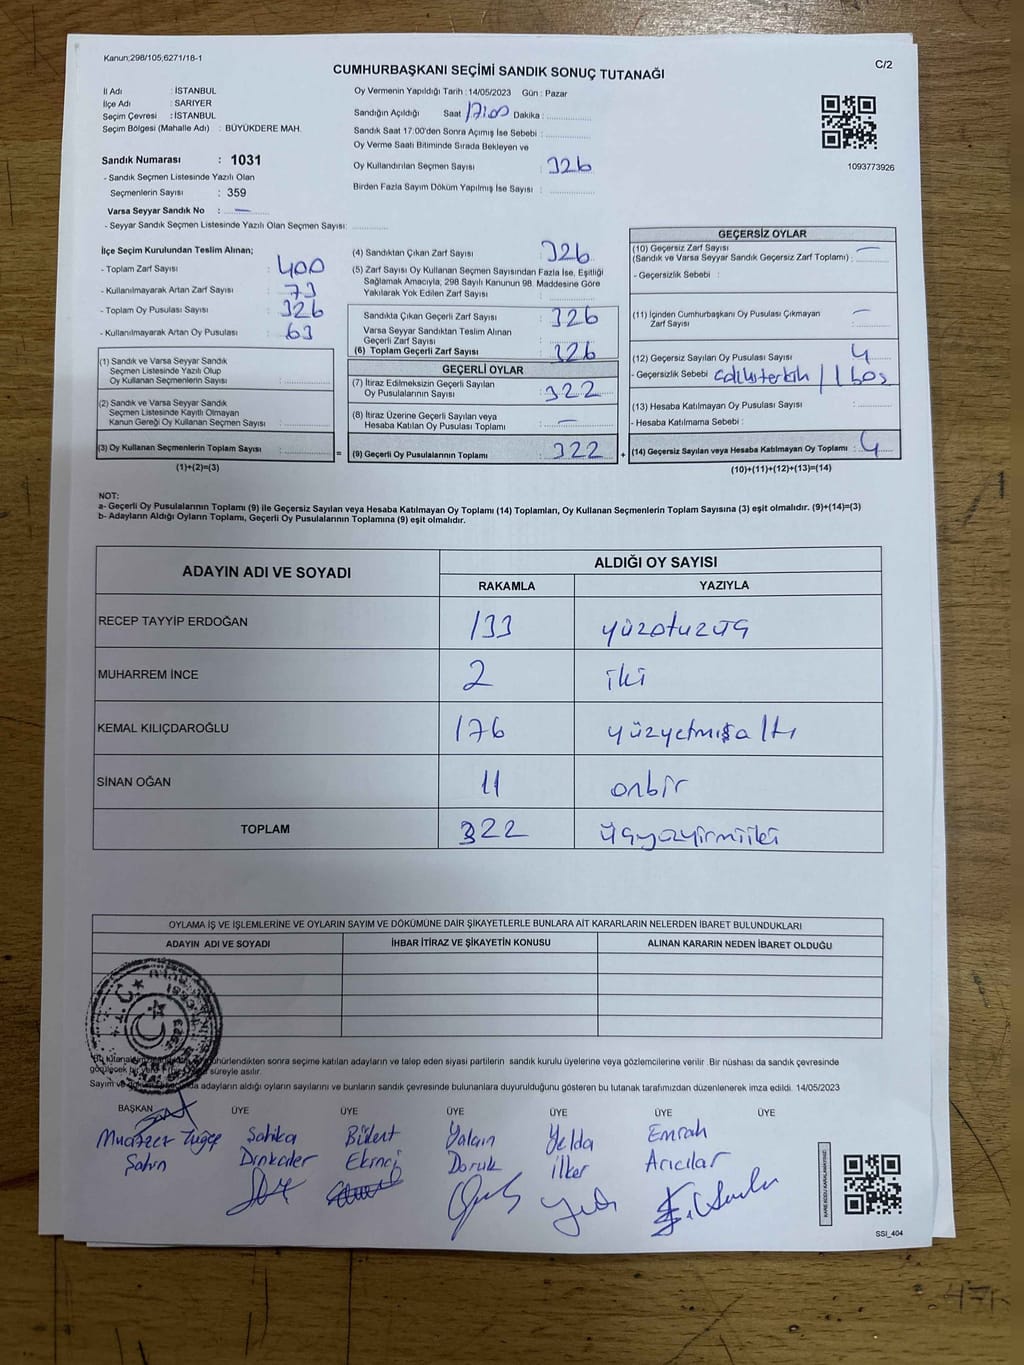 Kanun;298/105,6271/18-1
C/2
CUMHURBAŞKANI SEÇİMİ SANDIK SONUÇ TUTANAĞI
İl Adı : İSTANBUL
İlçe Adı : SARIYER
Seçim Çevresi : İSTANBUL
Seçim Bölgesi (Mahalle Adı) : BÜYÜKDERE MAH.
Sandık Numarası : 1031
- Sandık Seçmen Listesinde Yazılı Olan
Seçmenlerin Sayısı : 359
Varsa Seyyar Sandık No : —
- Seyyar Sandık Seçmen Listesinde Yazılı Olan Seçmen Sayısı:
Oy Vermenin Yapıldığı Tarih : 14/05/2023 Gün : Pazar
Sandığın Açıldığı Saat 17:00 Dakika :
Sandık Saat 17:00'den Sonra Açımış İse Sebebi :
Oy Verme Saati Bitiminde Sırada Bekleyen ve
Oy Kullandırılan Seçmen Sayısı : 326
Birden Fazla Sayım Döküm Yapılmış İse Sayısı :
1093773926
İlçe Seçim Kurulundan Teslim Alınan;
- Toplam Zarf Sayısı : 400
- Kullanılmayarak Artan Zarf Sayısı : 73
- Toplam Oy Pusulası Sayısı : 326
- Kullanılmayarak Artan Oy Pusulası : 63
(1) Sandık ve Varsa Seyyar Sandık
Seçmen Listesinde Yazılı Olup
Oy Kullanan Seçmenlerin Sayısı :
(2) Sandık ve Varsa Seyyar Sandık
Seçmen Listesinde Kayıtlı Olmayan
Kanun Gereği Oy Kullanan Seçmen Sayısı :
(3) Oy Kullanan Seçmenlerin Toplam Sayısı :
(1)+(2)=(3)
=
(4) Sandıktan Çıkan Zarf Sayısı : 326
(5) Zarf Sayısı Oy Kullanan Seçmen Sayısından Fazla İse, Eşitliği
Sağlamak Amacıyla, 298 Sayılı Kanunun 98. Maddesine Göre
Yakılarak Yok Edilen Zarf Sayısı :
Sandıkta Çıkan Geçerli Zarf Sayısı : 326
Varsa Seyyar Sandıktan Teslim Alınan
Geçerli Zarf Sayısı :
(6) Toplam Geçerli Zarf Sayısı : 326
GEÇERLİ OYLAR
(7) İtiraz Edilmeksizin Geçerli Sayılan
Oy Pusulalarının Sayısı : 322
(8) İtiraz Üzerine Geçerli Sayılan veya
Hesaba Katılan Oy Pusulası Toplamı : —
(9) Geçerli Oy Pusulalarının Toplamı : 322
+
GEÇERSİZ OYLAR
(10) Geçersiz Zarf Sayısı —
(Sandık ve Varsa Seyyar Sandık Geçersiz Zarf Toplamı) :
- Geçersizlik Sebebi :
(11) İçinden Cumhurbaşkanı Oy Pusulası Çıkmayan —
Zarf Sayısı :
(12) Geçersiz Sayılan Oy Pusulası Sayısı : 4
- Geçersizlik Sebebi 1 boş
(13) Hesaba Katılmayan Oy Pusulası Sayısı :
- Hesaba Katılmama Sebebi :
(14) Geçersiz Sayılan veya Hesaba Katılmayan Oy Toplamı : 4
(10)+(11)+(12)+(13)=(14)
NOT:
a- Geçerli Oy Pusulalarının Toplamı (9) ile Geçersiz Sayılan veya Hesaba Katılmayan Oy Toplamı (14) Toplamları, Oy Kullanan Seçmenlerin Toplam Sayısına (3) eşit olmalıdır. (9)+(14)=(3)
b- Adayların Aldığı Oyların Toplamı, Geçerli Oy Pusulalarının Toplamına (9) eşit olmalıdır.
ADAYIN ADI VE SOYADI
ALDIĞI OY SAYISI
RAKAMLA YAZIYLA
RECEP TAYYİP ERDOĞAN 133 yüzotuzüç
MUHARREM İNCE 2 iki
KEMAL KILIÇDAROĞLU 176 yüzyetmişaltı
SİNAN OĞAN 11 onbir
TOPLAM 322 üçyüzyirmiiki
OYLAMA İŞ VE İŞLEMLERİNE VE OYLARIN SAYIM VE DÖKÜMÜNE DAİR ŞİKAYETLERLE BUNLARA AİT KARARLARIN NELERDEN İBARET BULUNDUKLARI
ADAYIN ADI VE SOYADI İHBAR İTİRAZ VE ŞİKAYETİN KONUSU ALINAN KARARIN NEDEN İBARET OLDUĞU
sonra seçime katılan adayların ve talep eden siyasi partilerin sandık kurulu üyelerine veya gözlemcilerine verilir .Bir nüshası da sandık çevresinde
süreyle asılır.
Sayım adayların aldığı oyların sayılarını ve bunların sandık çevresinde bulunanlara duyurulduğunu gösteren bu tutanak tarafımızdan düzenlenerek imza edildi. 14/05/2023
BAŞKAN ÜYE ÜYE ÜYE ÜYE ÜYE ÜYE
Muazzez Tuğçe Şahika Bülent Yalçın Yelda Emrah
Şahin Dinkciler Ekinci Doruk İlker Arıcılar
SSİ_404